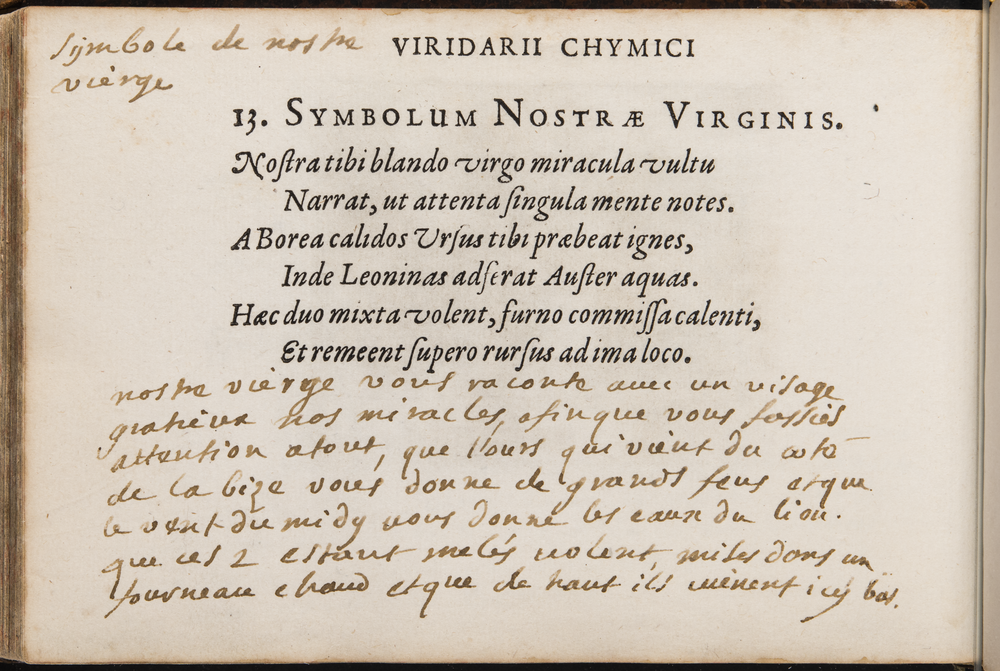 Symbole de nostre
vièrge
VIRIDARII CHYMICI
13. SYMBOLUM NOSTRÆ VIRGINIS.
Noſtra tibi blando virgo miracula vultu
Narrat, ut attenta ſingula mente notes.
A Borea calidos Urſus tibi præbeat ignes,
Inde Leoninas adſerat Auſter aquas.
Hæc duo mixta volent, furno commiſſa calenti,
Et remeent ſupero rurſus ad ima loco.
nostre vièrge vous raconte avec un visage
gratieux nos miracles, afin que vous fassiés
attention atout, que l'ours qui vient du coté
de la bize vous donne de grands feus et que
le vent du midy vous donne les eaux du lion.
que ces 2 estant melés volent, mises dans un
fourneau chaud et que de haut ils viènent icy bas.